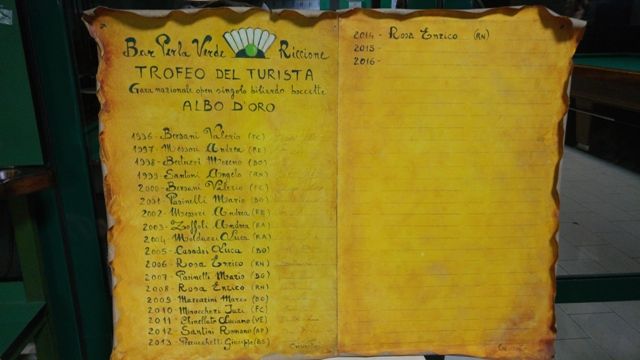 Bar Perla Verde Riccione
TROFEO DEL TURISTA
Gara nazionale open singolo biliardo boccette
ALBO D'ORO
1996 - Bersani Valerio (FC)
1997 - Messori Andrea (RE)
1998 - Moreno (BO)
1999 - Santoni Angelo (RN)
2000 - Bersani Valerio (FC)
2001 - Parinetti Mario (BO)
2002 - Messori Andrea (RE)
2003 - Zoffoli Andrea (RA)
2004 - Molduzzi Luca (RA)
2005 - Casadei Luca (BO)
2006 - Rosa Enrico (RN)
2007 - Parinetti Mario (BO)
2008 - Rosa Enrico (RN)
2009 - Marcarini Marco (BO)
2010 - Minoccheri Juri (FC)
2011 - Luciano (VE)
2012 - Santini Romano (AP)
2013 - Giuseppe (BS)
2014 - Rosa Enrico (RN)
2015 -
2016 -